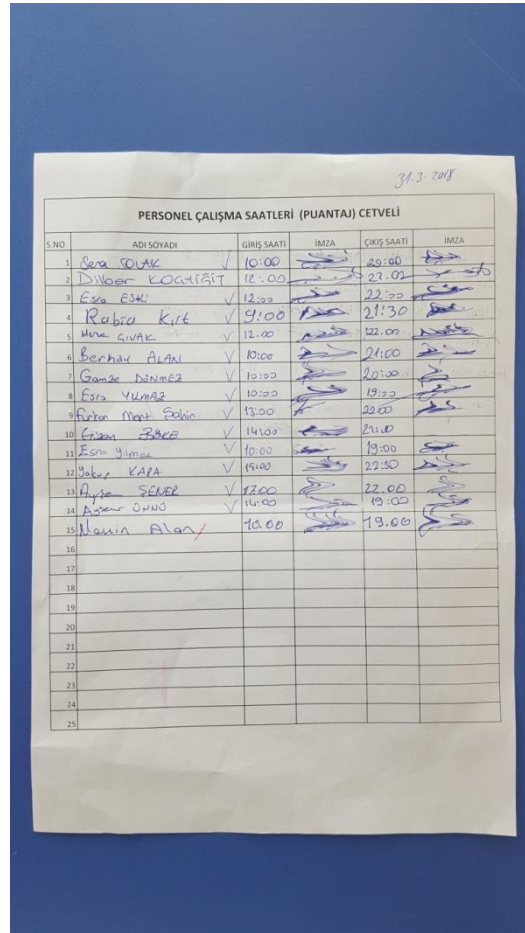 31-3-2018
PERSONEL ÇALIŞMA SAATLERİ (PUANTAJ) CETVELİ
S.NO ADI SOYADI GİRİŞ SAATİ İMZA ÇIKIŞ SAATİ IMZA
1 Sena 10:00 20:00
2 Dilber KOÇYİĞİT 12.00 22.00
3 Esra ESKİ 12:00 22:00
4 Rabia Kırt 9:00 21:30
5 12.00 22.00
6 Berkay ALANI 10:00 21:00
7 Gamze DÖNMEZ 10:00 20:00
8 Esra YILMAZ 10:00 19:00
9 Furkan Mert Şahin 13:00 22:00
10 14:00
11 Esra Yılmaz 10:00 19:00
12 Yakup KARA 15:00 22:30
13 Ayşe ŞENER 17.00 22.00
14 Ayşenur ÜNNÜ 14:00 19:00
15 Alan 10.00 19.00
16
17
18
19
20
21
22
23
24
25